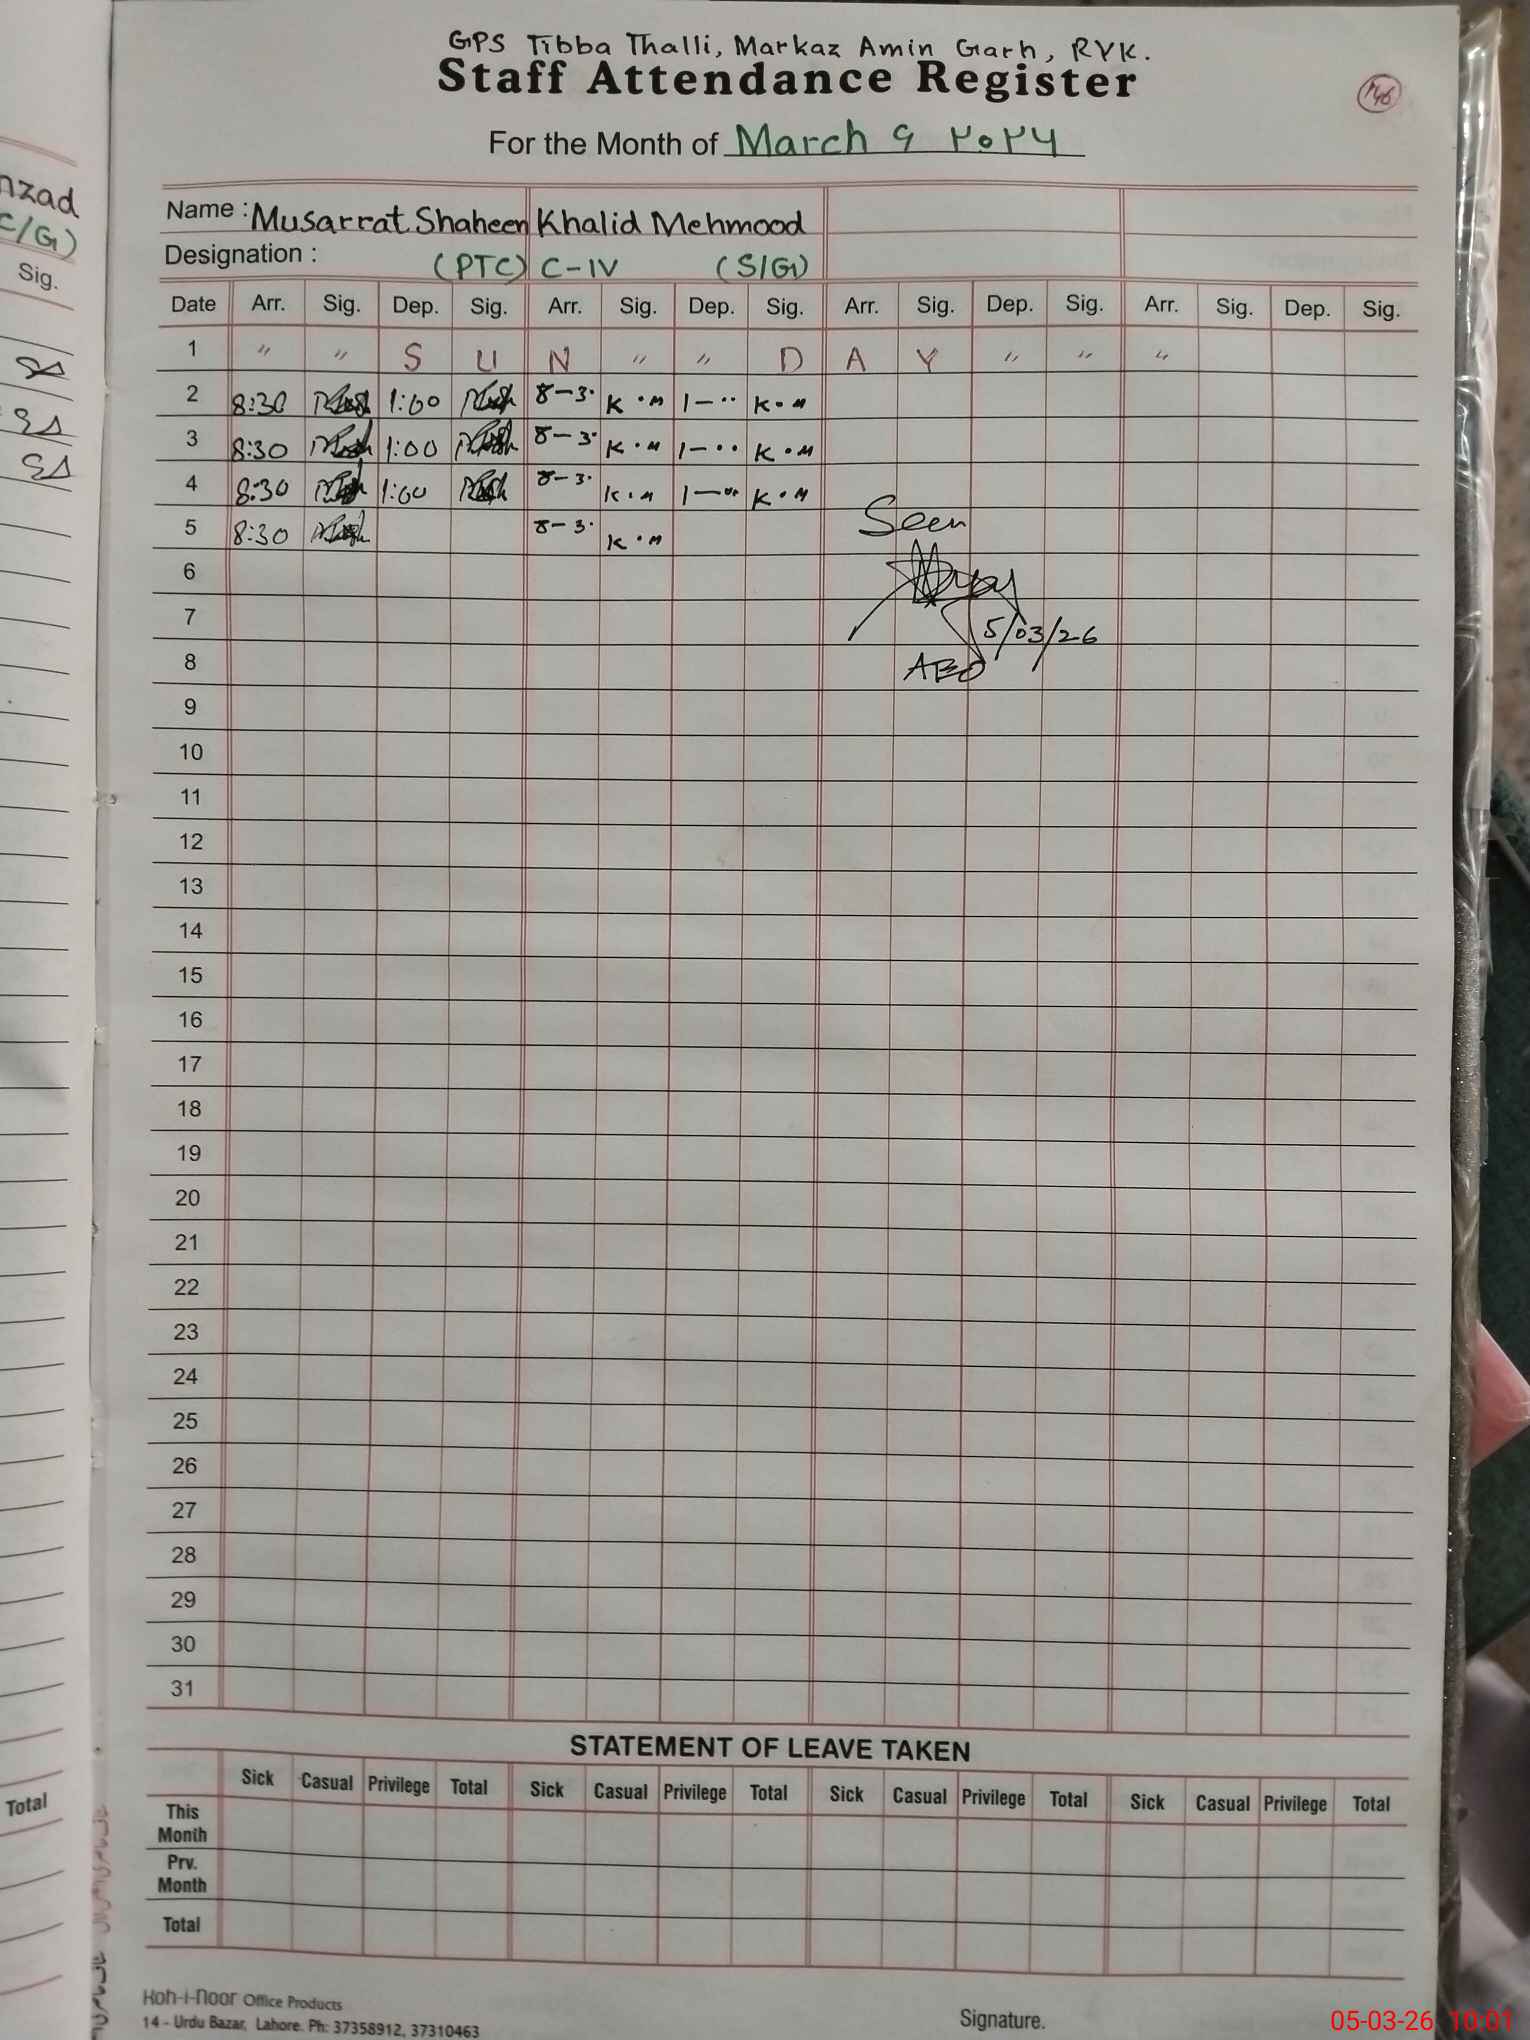 GPS Tibba Thalli, Markaz Amin Garh, RYK.
Staff Attendance Register
For the Month of March ۲۰۲۶
Name : Musarrat Shaheen Khalid Mehmood
Designation : (PTC) C-IV (S/G)
Date Arr. Sig. Dep. Sig. Arr. Sig. Dep. Sig. Arr. Sig. Dep. Sig. Arr. Sig. Dep. Sig.
1 " " S U N " " D A Y " " "
2 8:30 1:00 8-3. K.M 1-.. K.M
3 8:30 1:00 8-3. K.M 1-.. K.M
4 8:30 1:00 8-3. K.M 1-.. K.M
5 8:30 8-3. K.M
Seen
6
7
5/03/26
8
AEO
9
10
11
12
13
14
15
16
17
18
19
20
21
22
23
24
25
26
27
28
29
30
31
STATEMENT OF LEAVE TAKEN
Sick Casual Privilege Total Sick Casual Privilege Total Sick Casual Privilege Total Sick Casual Privilege Total
This
Month
Prv.
Month
Total
Koh-i-Noor Office Products
14 - Urdu Bazar, Lahore. Ph: 37358912, 37310463
Signature.
05-03-26 10:01
nzad
C/G)
Sig.
Total